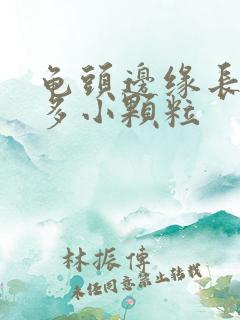 龟頭邊緣長
多小顆粒
林振傳
未经同意禁止转载